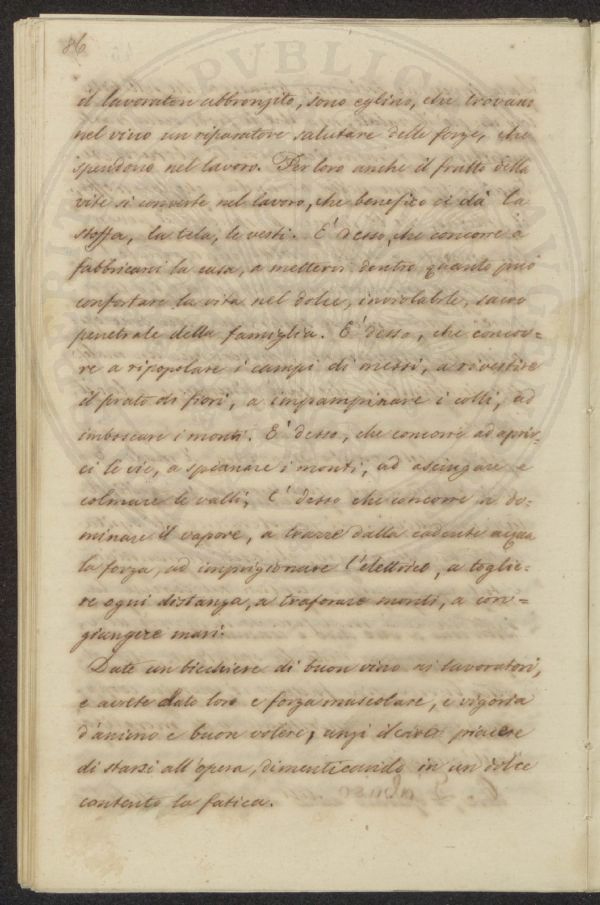 86
il lavoratore abbronzito, sono eglino, che trovano
nel vino un riparatore salutare delle forze, che
spendono nel lavoro. Per loro anche il frutto della
vite si converte nel lavoro, che benefico ci dà la
stoffa, la tela, le vesti. E' desso, che concorre a
fabbricarci la casa, a mettervi dentro quanto può
confortare la vita nel dolce, inviolabile, sacro
penetrale della famiglia. E' desso, che concor-
re a ripopolare i campi di messi, a rivestire
il prato di fiori, a impampinare i colli, ad
imboscare i monti. E' desso, che concorre ad aprir-
ci le vie, a spianare i monti, ad asciugare e
colmare le valli; E' desso che concorre a do-
minare il vapore, a trarre dalla cadente acqua
la forza, ad imprigionare l'elettrico, a toglie-
re ogni distanza, a traforare monti, a con-
giungere mari.
Date un bicchiere di buon vino ai lavoratori,
e avrete dato loro e forza muscolare, e vigoria
d'animo e buon volere, anzi il caro piacere
di starsi all'opera, dimenticando in un dolce
contento la fatica.